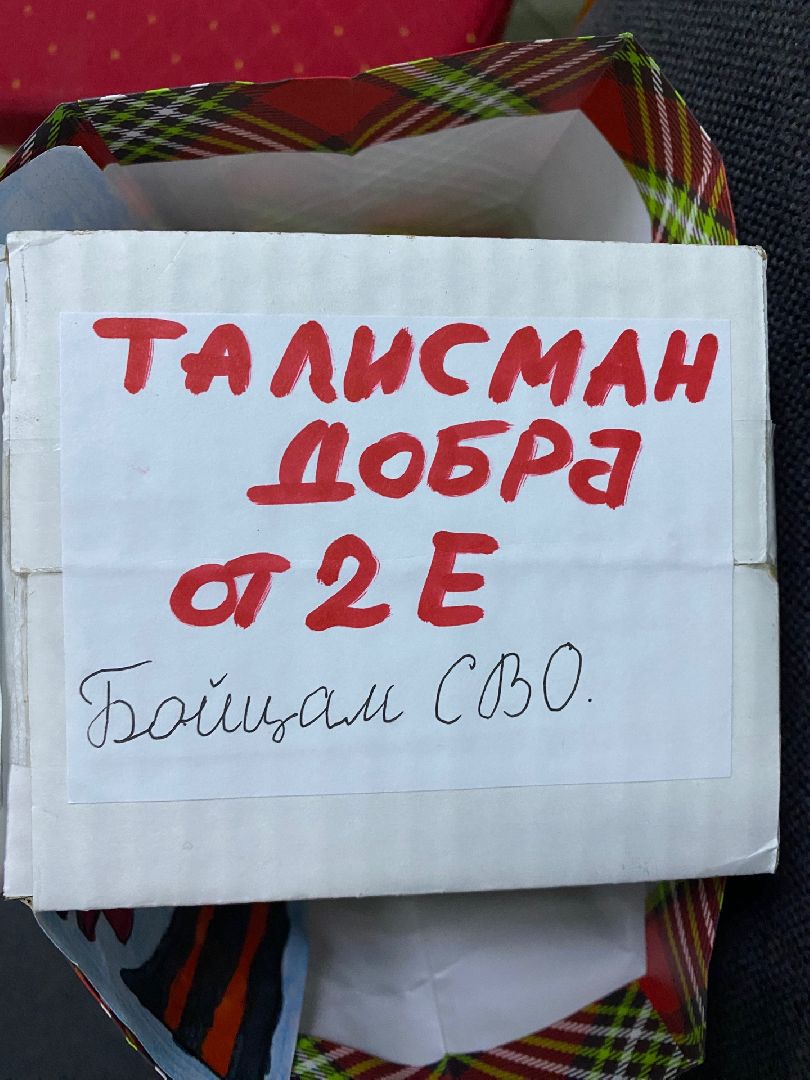 ТАЛИСМАН
ДОБРА
от 2 Е
Бойцам СВО.